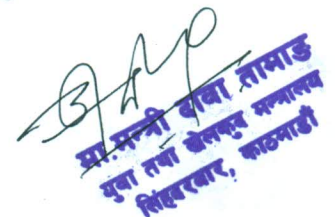 मा. मन्त्री बाबा तामाङ
युवा तथा खेलकुद मन्त्रालय
सिंहदरबार, काठमाडौँ